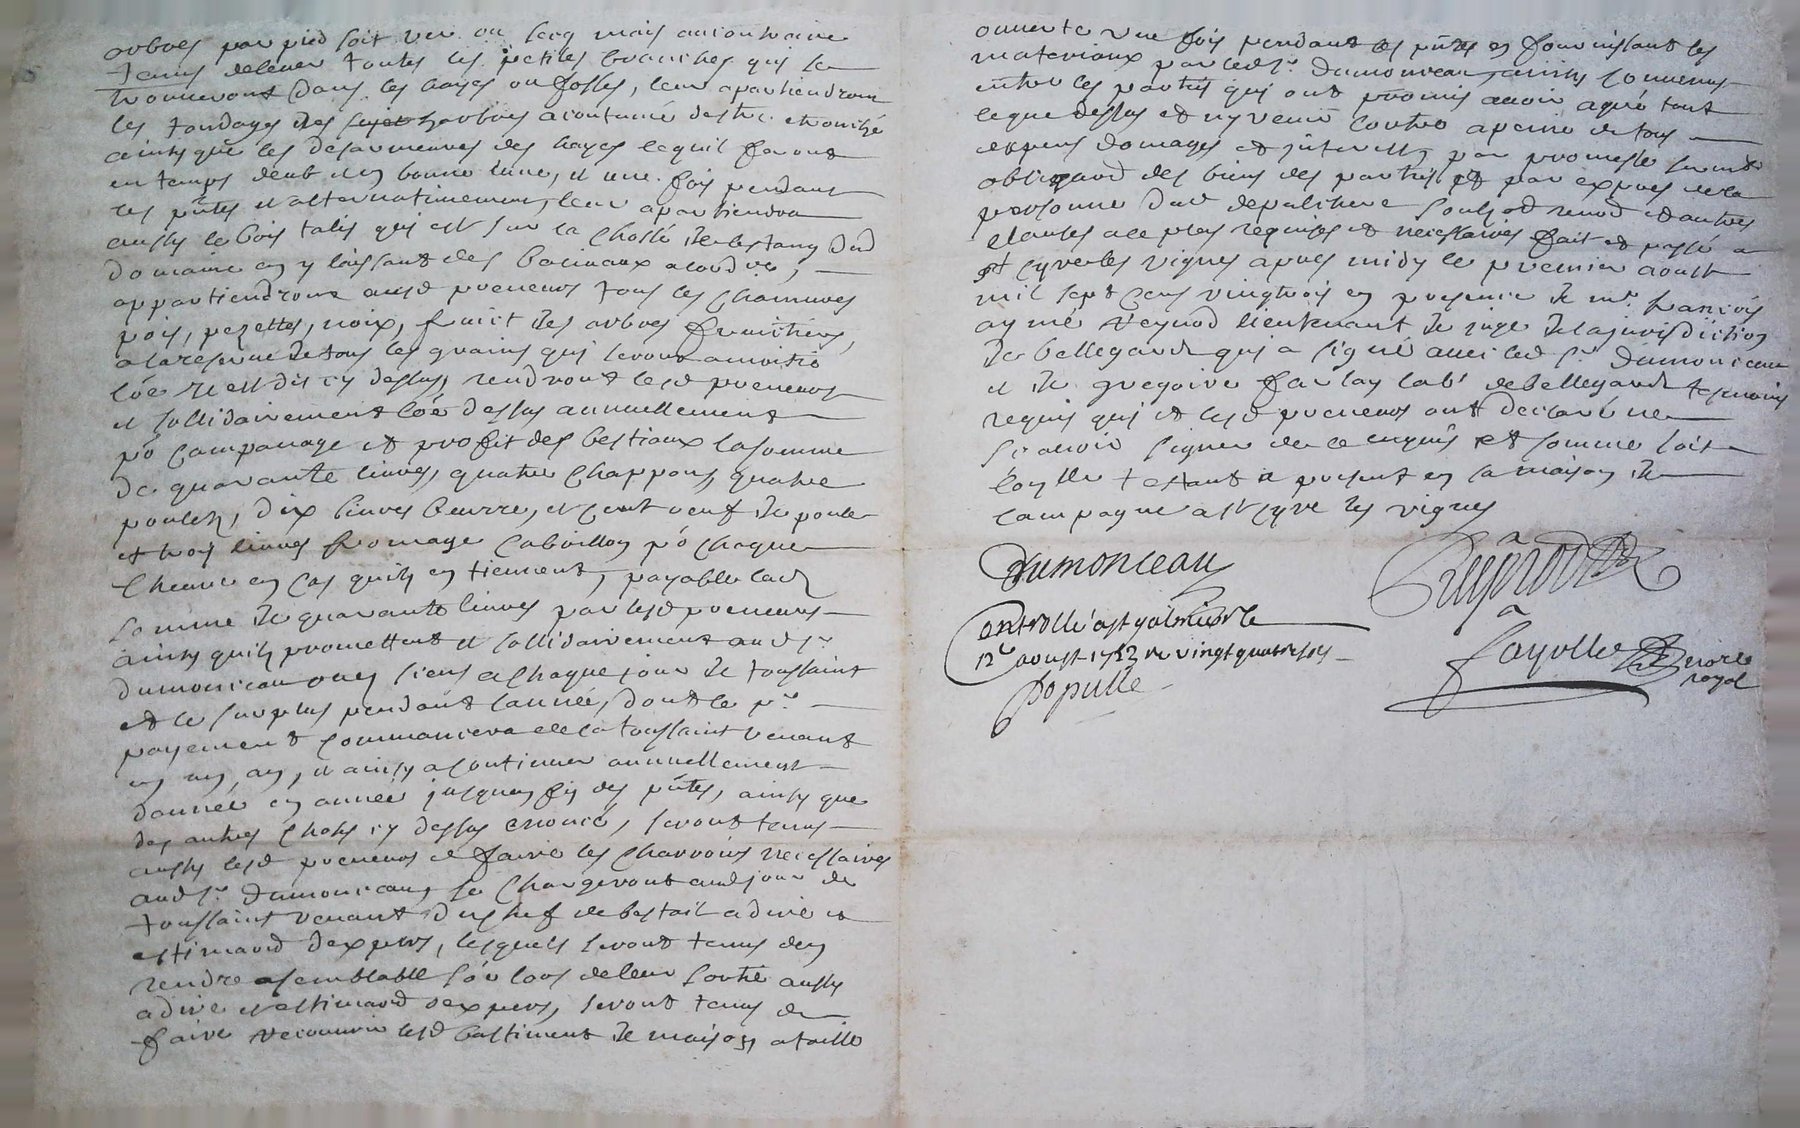 arbres par pied soit ver ou secq mais au contraire
tenus deslever toutes les petites branches qui se
trouveront dans les hayes ou fossés, leur apartiendront
les tondages des arbres acoutumé destre etronché
ainsy que les desarmeures des hayes lequil feront
en temps deub et en bonne lune, et une fois pendant
les pntes et alternativement, leur apartiendra
aussy le bois talis qui est sur la chossé de lestang dud
domaine en y laissant des baliveaux a lordre,
appartiendront ausd preneurs tous les chanvres
pois, pezettes, noix, fruict des arbres fruictiers,
a la reserve de tous les grains qui seront a moitié
coe il est dit cy dessus, rendront lesd preneurs
et sollidairement coe dessus annuellement
po campanage et profit des bestiaux la somme
de quarante livres, quatre chappons, quatre
poulets, dix livres beurre, et cent oeuf de poule
et trois livres fromage cabaillon po chaque
chevre en cas quils en tiennent, payable lad
somme de quarante livres par lesd preneurs
ainsy quils promettent et sollidairement aud sr
dumonceau ou es siens a chaque jour de toussaint
et le surplus pendant lannée, dont le pr
payement commancera a la toussaint venant
en un an, et ainsy a continuer annuellement
dannée en année jusques fin des pntes, ainsy que
des autres choses cy dessus enoncé, seront tenus
aussy lesd preneurs de faire les charrois necessaires
aud sr dumonceau, se chargeront aud jour de
toussaint venant du chef de bestail a dire et
estimaōn dexpers, lesquels seront tenus den
rendre a semblable soe lors de leur sortie aussy
a dire et estimaōn dexpers, seront tenus de
faire recouvrir lesd bastiment de maison a taille
ouverte une fois pendant les pntes en fournissant les
materiaux par led sr dumonceau, ainsy convenus
entre les parties qui ont promis avoir agreé tout
ce que dessus et ny venir contre a peine de tous
despens domages et interests par promesse serment
obligaōn des biens des parties et par expres de la
personne dud depalchere soubzōn renōn et autres
clauses a ce plus requises et necessaires fait et passé a
st cyre les vignes apres midy le premier aoust
mil sept cens vingt trois en presence de mr françois
aymé reynod lieutenant de juge de la jurisdiction
de bellegarde qui a signé avec led sr dumonceau
et de gregoire farlay labr de bellegarde tesmoins
requis qui et lesd preneurs ont declaré ne
scavoir signer de ce enquis et sommé soit
coellé estant a present en sa maison de
campagne a st cyre les vignes
Dumonceau
Reynod
Controllé a st galmier le
12e aoust 1723 re vingt quatre sols
Populle
fayolle
norte
royal